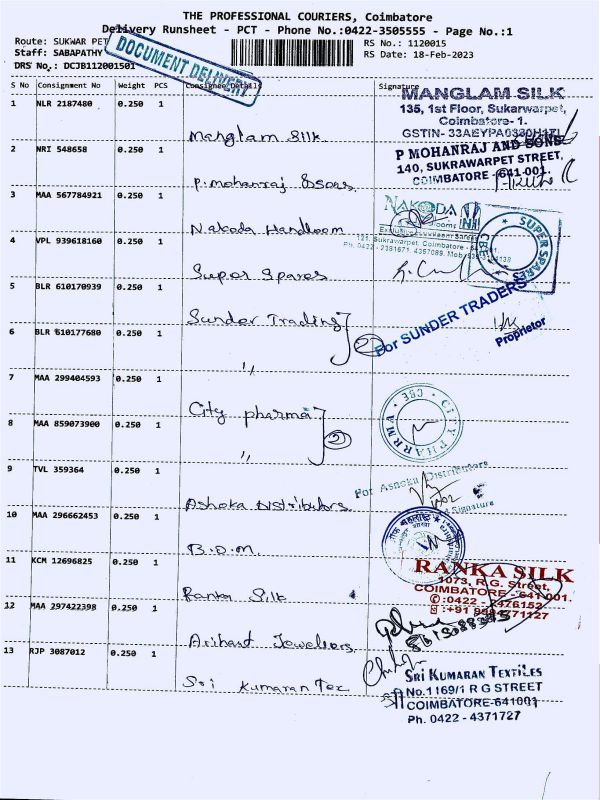 THE PROFESSIONAL COURIERS, Coimbatore
Delivery Runsheet - PCT - Phone No.:0422-3505555 - Page No.:1
Route: SUKWAR PET
RS No.: 1120015
Staff: SABAPATHY
RS Date: 18-Feb-2023
DRS No.: DCJB112001501
DOCUMENT DELIVERY
S No Consignment No Weight PCS Consignee Details Signature
1 NLR 2187480 0.250 1
Manglam Silk
MANGLAM SILK
135, 1st Floor, Sukarwarpet,
Coimbatore- 1.
GSTIN- 33AEYPA0330H1ZI
2 NRI 548658 0.250 1
P. mohanraj & sons
P MOHANRAJ AND SONS
140, SUKRAWARPET STREET,
COIMBATORE - 641 001.
3 MAA 567784921 0.250 1
Nakoda Handloom
NAKODA
121, Sukrawarpet, Coimbatore
Ph. 0422 - 2381671, 4357089, Mob:
4 VPL 939618160 0.250 1
Super Spares
SUPER SPARES
CBE
5 BLR 610170939 0.250 1
Sunder Trading
2
For SUNDER TRADERS
Proprietor
6 BLR 610177680 0.250 1
,,
7 MAA 299404593 0.250 1
City pharma
2
CITY PHARRMA
CBE
8 MAA 859073900 0.250 1
,,
9 TVL 359364 0.250 1
Ashoka Distributors
For Ashoka Distributors
Signature
10 MAA 296662453 0.250 1
B.O.M
11 KCM 12696825 0.250 1
Ranka Silk
RANKA SILK
1073, R.G. Street,
COIMBATORE - 641 001.
12 MAA 297422398 0.250 1
Arihant Jewellers
13 RJP 3087012 0.250 1
Sri Kumaran Tex
SRI KUMARAN TEXTILES
No.1169/1 R G STREET
COIMBATORE-641001
Ph. 0422 - 4371727